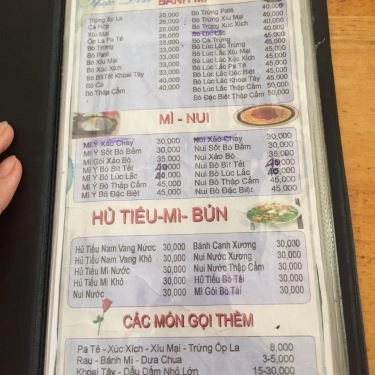 BÁNH MÌ
Trứng Ốp La 20,000
Cá Hộp 26,000
Xíu Mại 26,000
Ốp La Pa Tê 26,000
Bò Trứng 33,000
Bò Patê 33,000
Bò Xíu Mại 33,000
Bò Xúc Xích 33,000
Bò BítTết Khoai Tây 33,000
Bò Cá 33,000
Bò Thập Cẩm 40,000
Bò Trứng Patê 40,000
Bò Trứng Xíu Mại 40,000
Bò Trứng Xúc Xích 40,000
Bò Lúc Lắc
Bò Cá Trứng
Bò Lúc Lắc Trứng 45,000
Bò Lúc Lắc Xíu Mại 45,000
Bò Lúc Lắc Pa Tê 45,000
Bò Lúc Lắc Xúc Xích 45,000
Bò Lúc Lắc Đặc Biệt 45,000
Bò Lúc Lắc Khoai Tây 45,000
Bò Lúc Lắc Thập Cẩm 50,000
Bò Đặc Biệt Thập Cẩm 50,000
MÌ - NUI
Mì Ý Xào Chay 30,000
Mì Ý Sốt Bò Bằm 30,000
Mì Gói Xào Bò 35,000
Mì Ý Bò Bít Tết 40
Mì Ý Bò Lúc Lắc 40
Mì Ý Bò Thập Cẩm 45,000
Mì Ý Bò Đặc Biệt 45,000
Nui Xào Chay 30,000
Nui Sốt Bò Bằm 30,000
Nui Xào Bò 35,000
Nui Bò Bít Tết 40
Nui Bò Lúc Lắc 40
Nui Bò Thập Cẩm 45,000
Nui Bò Đặc Biệt 45,000
HỦ TIẾU-MÌ- BÚN
Hủ Tiếu Nam Vang Nước 30,000
Hủ Tiếu Nam Vang Khô 30,000
Hủ Tiếu Mì Nước 30,000
Hủ Tiếu Mì Khô 30,000
Nui Nước 30,000
Bánh Canh Xương 30,000
Nui Nước Xương 30,000
Nui Nước Thập Cẩm 30,000
Hủ Tiếu Bò Tái 30,000
Mì Gói Bò Tái 30,000
CÁC MÓN GỌI THÊM
Pa Tê - Xúc Xích - Xíu Mại - Trứng Ốp La 8,000
Rau - Bánh Mì - Dưa Chua 3-5,000
Khoai Tây - Dầu Dấm Nhỏ Lớn 15-30,000